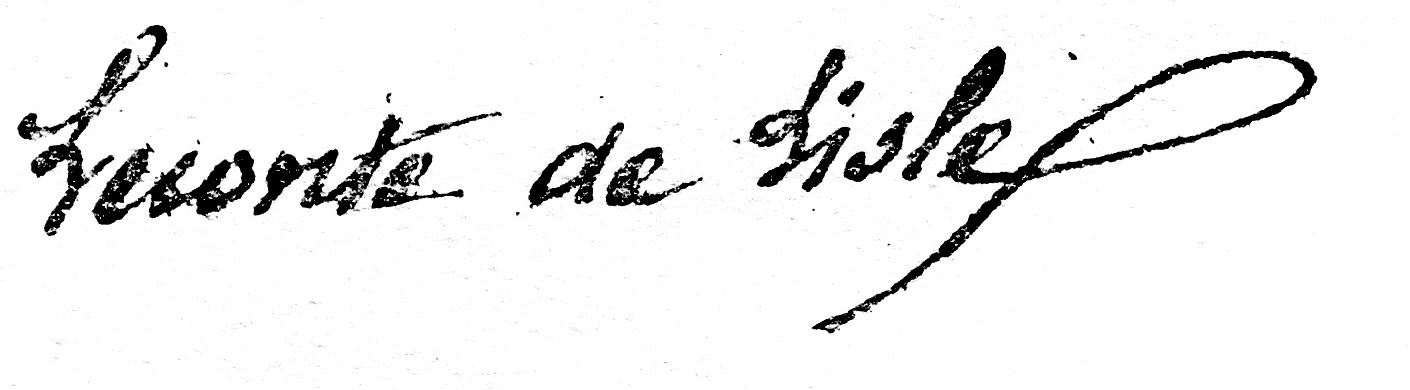 Leconte de Lisle